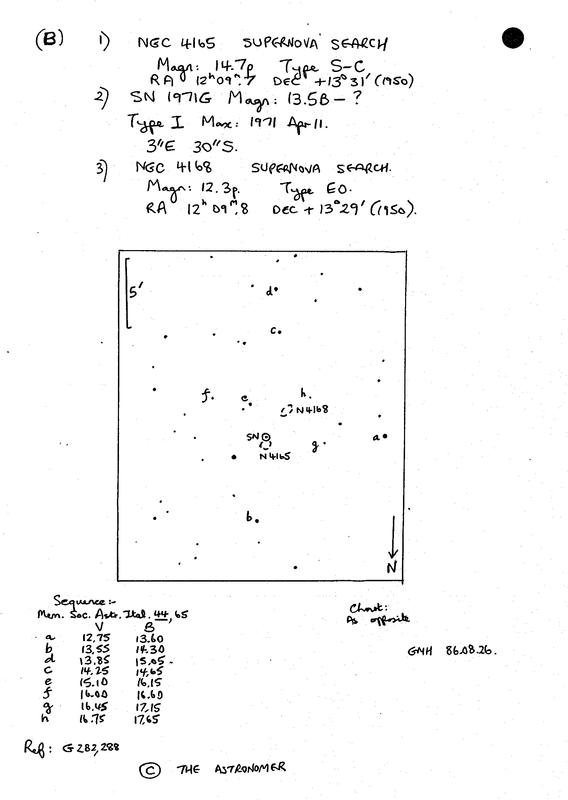 (B) 1) NGC 4165 SUPERNOVA SEARCH
Magn: 14.7p Type S-C
RA 12ʰ09ᵐ.7 DEC +13°31' (1950)
2) SN 1971G Magn: 13.5B - ?
Type I Max: 1971 Apr 11.
3"E 30"S.
3) NGC 4168 SUPERNOVA SEARCH.
Magn: 12.3p. Type E0.
RA 12ʰ 09ᵐ.8 DEC + 13°29' (1950).
5'
d
c
f
e
h
N4168
SN
g
a
N4165
b
N
Sequence:-
Mem. Soc. Astr. Ital. 44, 65
V B
a 12.75 13.60
b 13.55 14.30
d 13.85 15.05
c 14.25 14.65
e 15.10 16.15
f 16.00 16.60
g 16.45 17.15
h 16.75 17.65
Chart:
As opposite
GNH 86.08.26.
Ref: G 282, 288
© THE ASTRONOMER